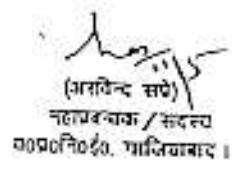 (अरविन्द सप्रे)
महाप्रबन्धक / सदस्य
प०प्र०नि०ई०, गाजियाबाद।